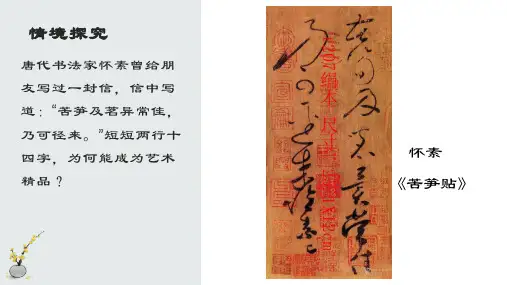 情境探究
唐代书法家怀素曾给朋
友写过一封信，信中写
道：“苦笋及茗异常佳，
乃可径来。”短短两行十
四字，为何能成为艺术
精品？
苦笋及茗異常佳
乃可迳来怀素上
怀素
《苦笋贴》